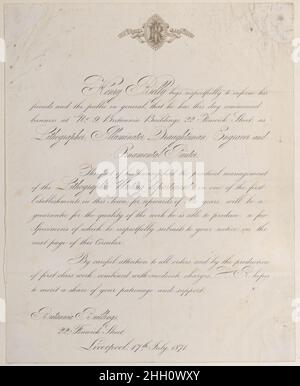 Henry Kelly begs respectfully to inform his
friends and the public in general that he has this day commenced
business at No 9 Britannia Buildings 22 Fenwick Street, as
Lithographer, Illuminator, Draughtsman, Engraver and
Ornamental Writer.
The fact of having had the practical management
of the Lithographic Writing department in one of the first
Establishments in this Town for upwards of years will be a
guarantee for the quality of the work he is able to produce, a few
Specimens of which he respectfully submits to your notice on the
next page of this Circular.
By careful attention to all orders and by the production
of first class work combined with moderate charges, hopes
to merit a share of your patronage and support.
Britannia Buildings,
22 Fenwick Street
Liverpool, 17th July, 1871
alamy
Image ID: 2HH0WXY
www.alamy.com